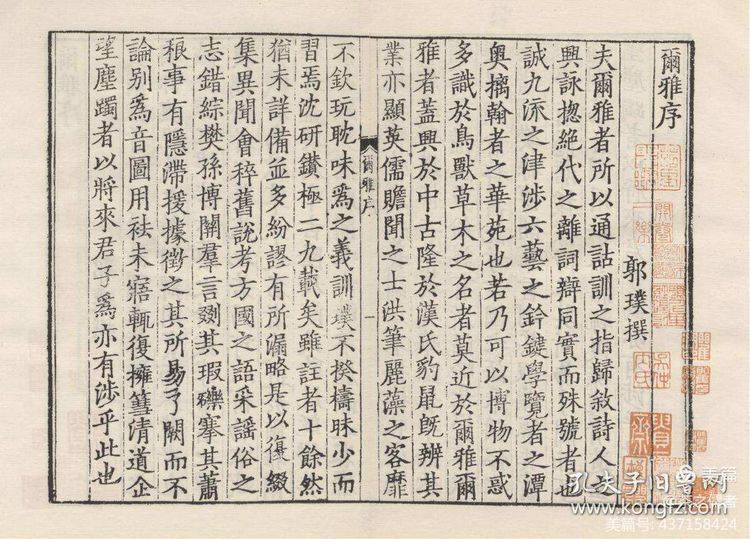 爾雅序
郭璞撰
夫爾雅者所以通詁訓之指歸敘詩人之
興詠揔絕代之離詞辯同實而殊號者也
誠九流之津涉六藝之鈐鍵學覽者之潭
奧摛翰者之華苑也若乃可以博物不惑
多識於鳥獸草木之名者莫近於爾雅爾
雅者蓋興於中古隆於漢氏豹鼠旣辨其
業亦顯英儒贍聞之士洪筆麗藻之客靡
爾雅序
一
不欽玩耽味爲之義訓璞不揆檮昧少而
習焉沈研鑽極二九載矣雖註者十餘然
猶未詳備並多紛謬有所漏略是以復綴
集異聞會稡舊說考方國之語采謠俗之
志錯綜樊孫博關羣言剟其瑕礫搴其蕭
稂事有隱滯援據徵之其所易了闕而不
論別爲音圖用袪未寤輒復擁篲清道企
望塵躅者以將來君子爲亦有涉乎此也
孔夫子旧书网
www.kongfz.com
美篇号: 437158424